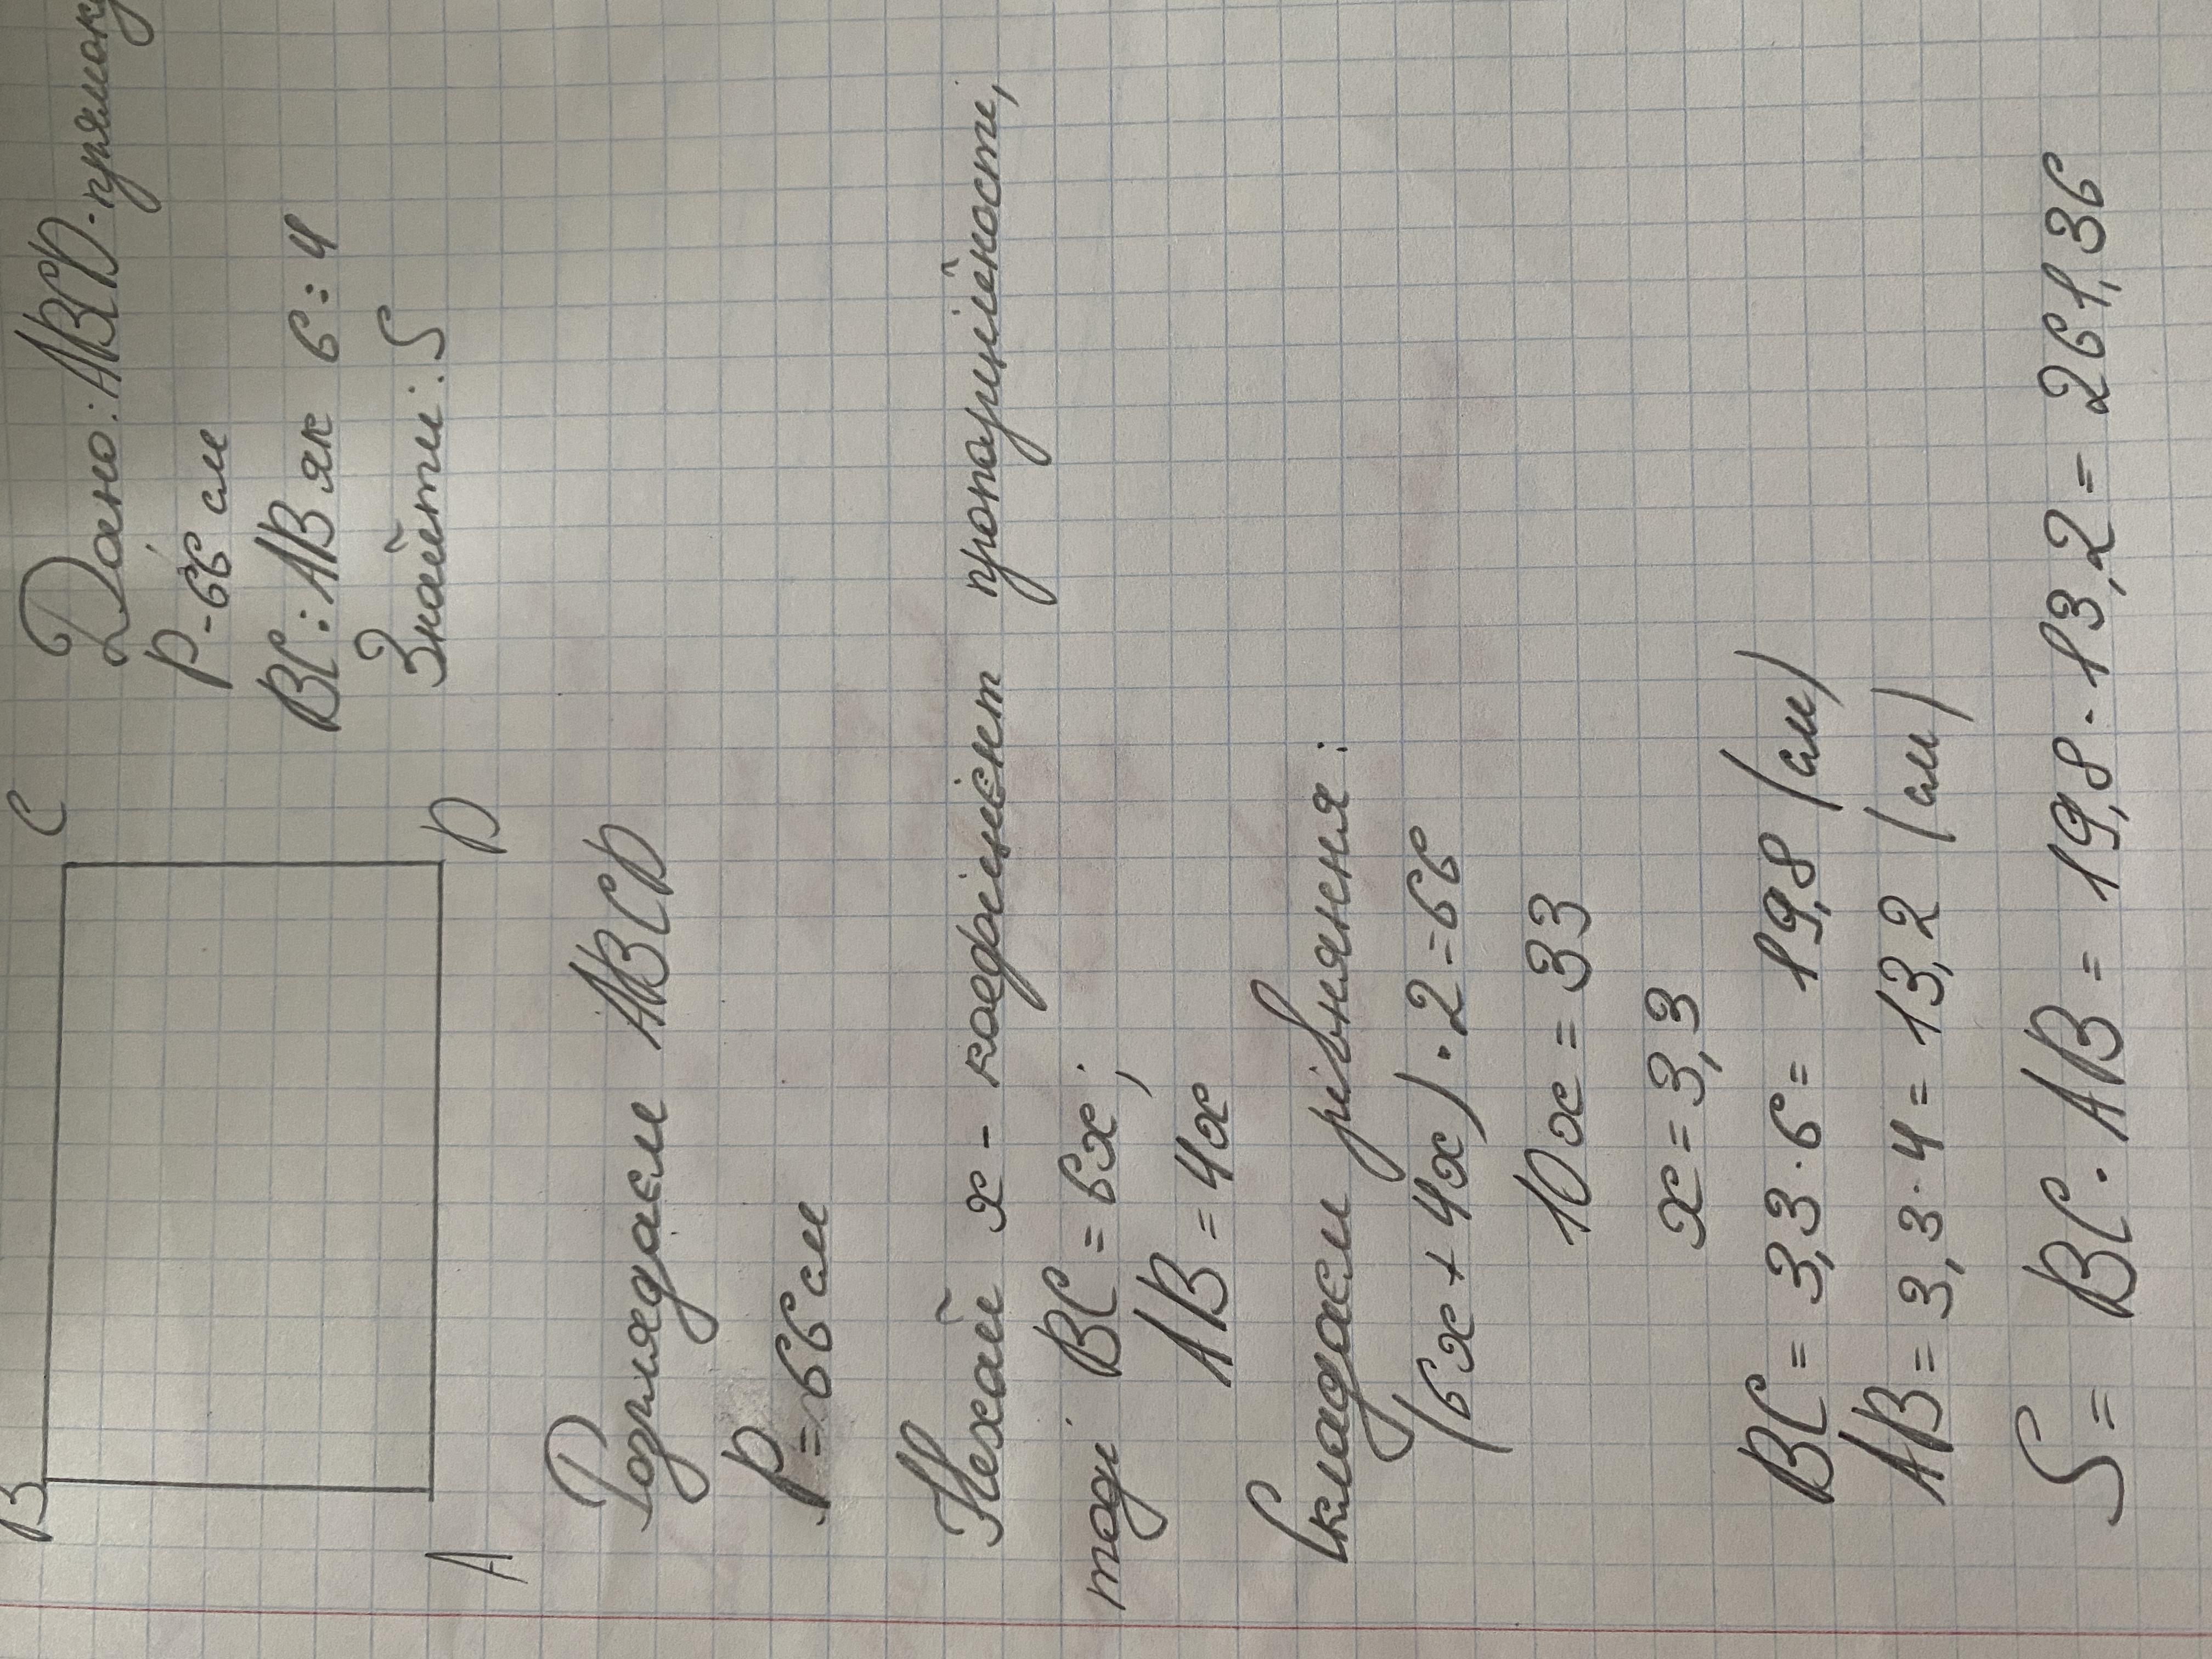 B
C
A
D
Дано: ABCD - прямок
P - 66 см
BC : AB як 6 : 4
Знайти: S
Розглядаєм ABCD
P = 66 см
Нехай x - коефіцієнт пропорційності,
тоді BC = 6x;
AB = 4x
Складаєм рівняння:
(6x + 4x) · 2 = 66
10x = 33
x = 3,3
BC = 3,3 · 6 = 19,8 (см)
AB = 3,3 · 4 = 13,2 (см)
S = BC · AB = 19,8 · 13,2 = 261,36